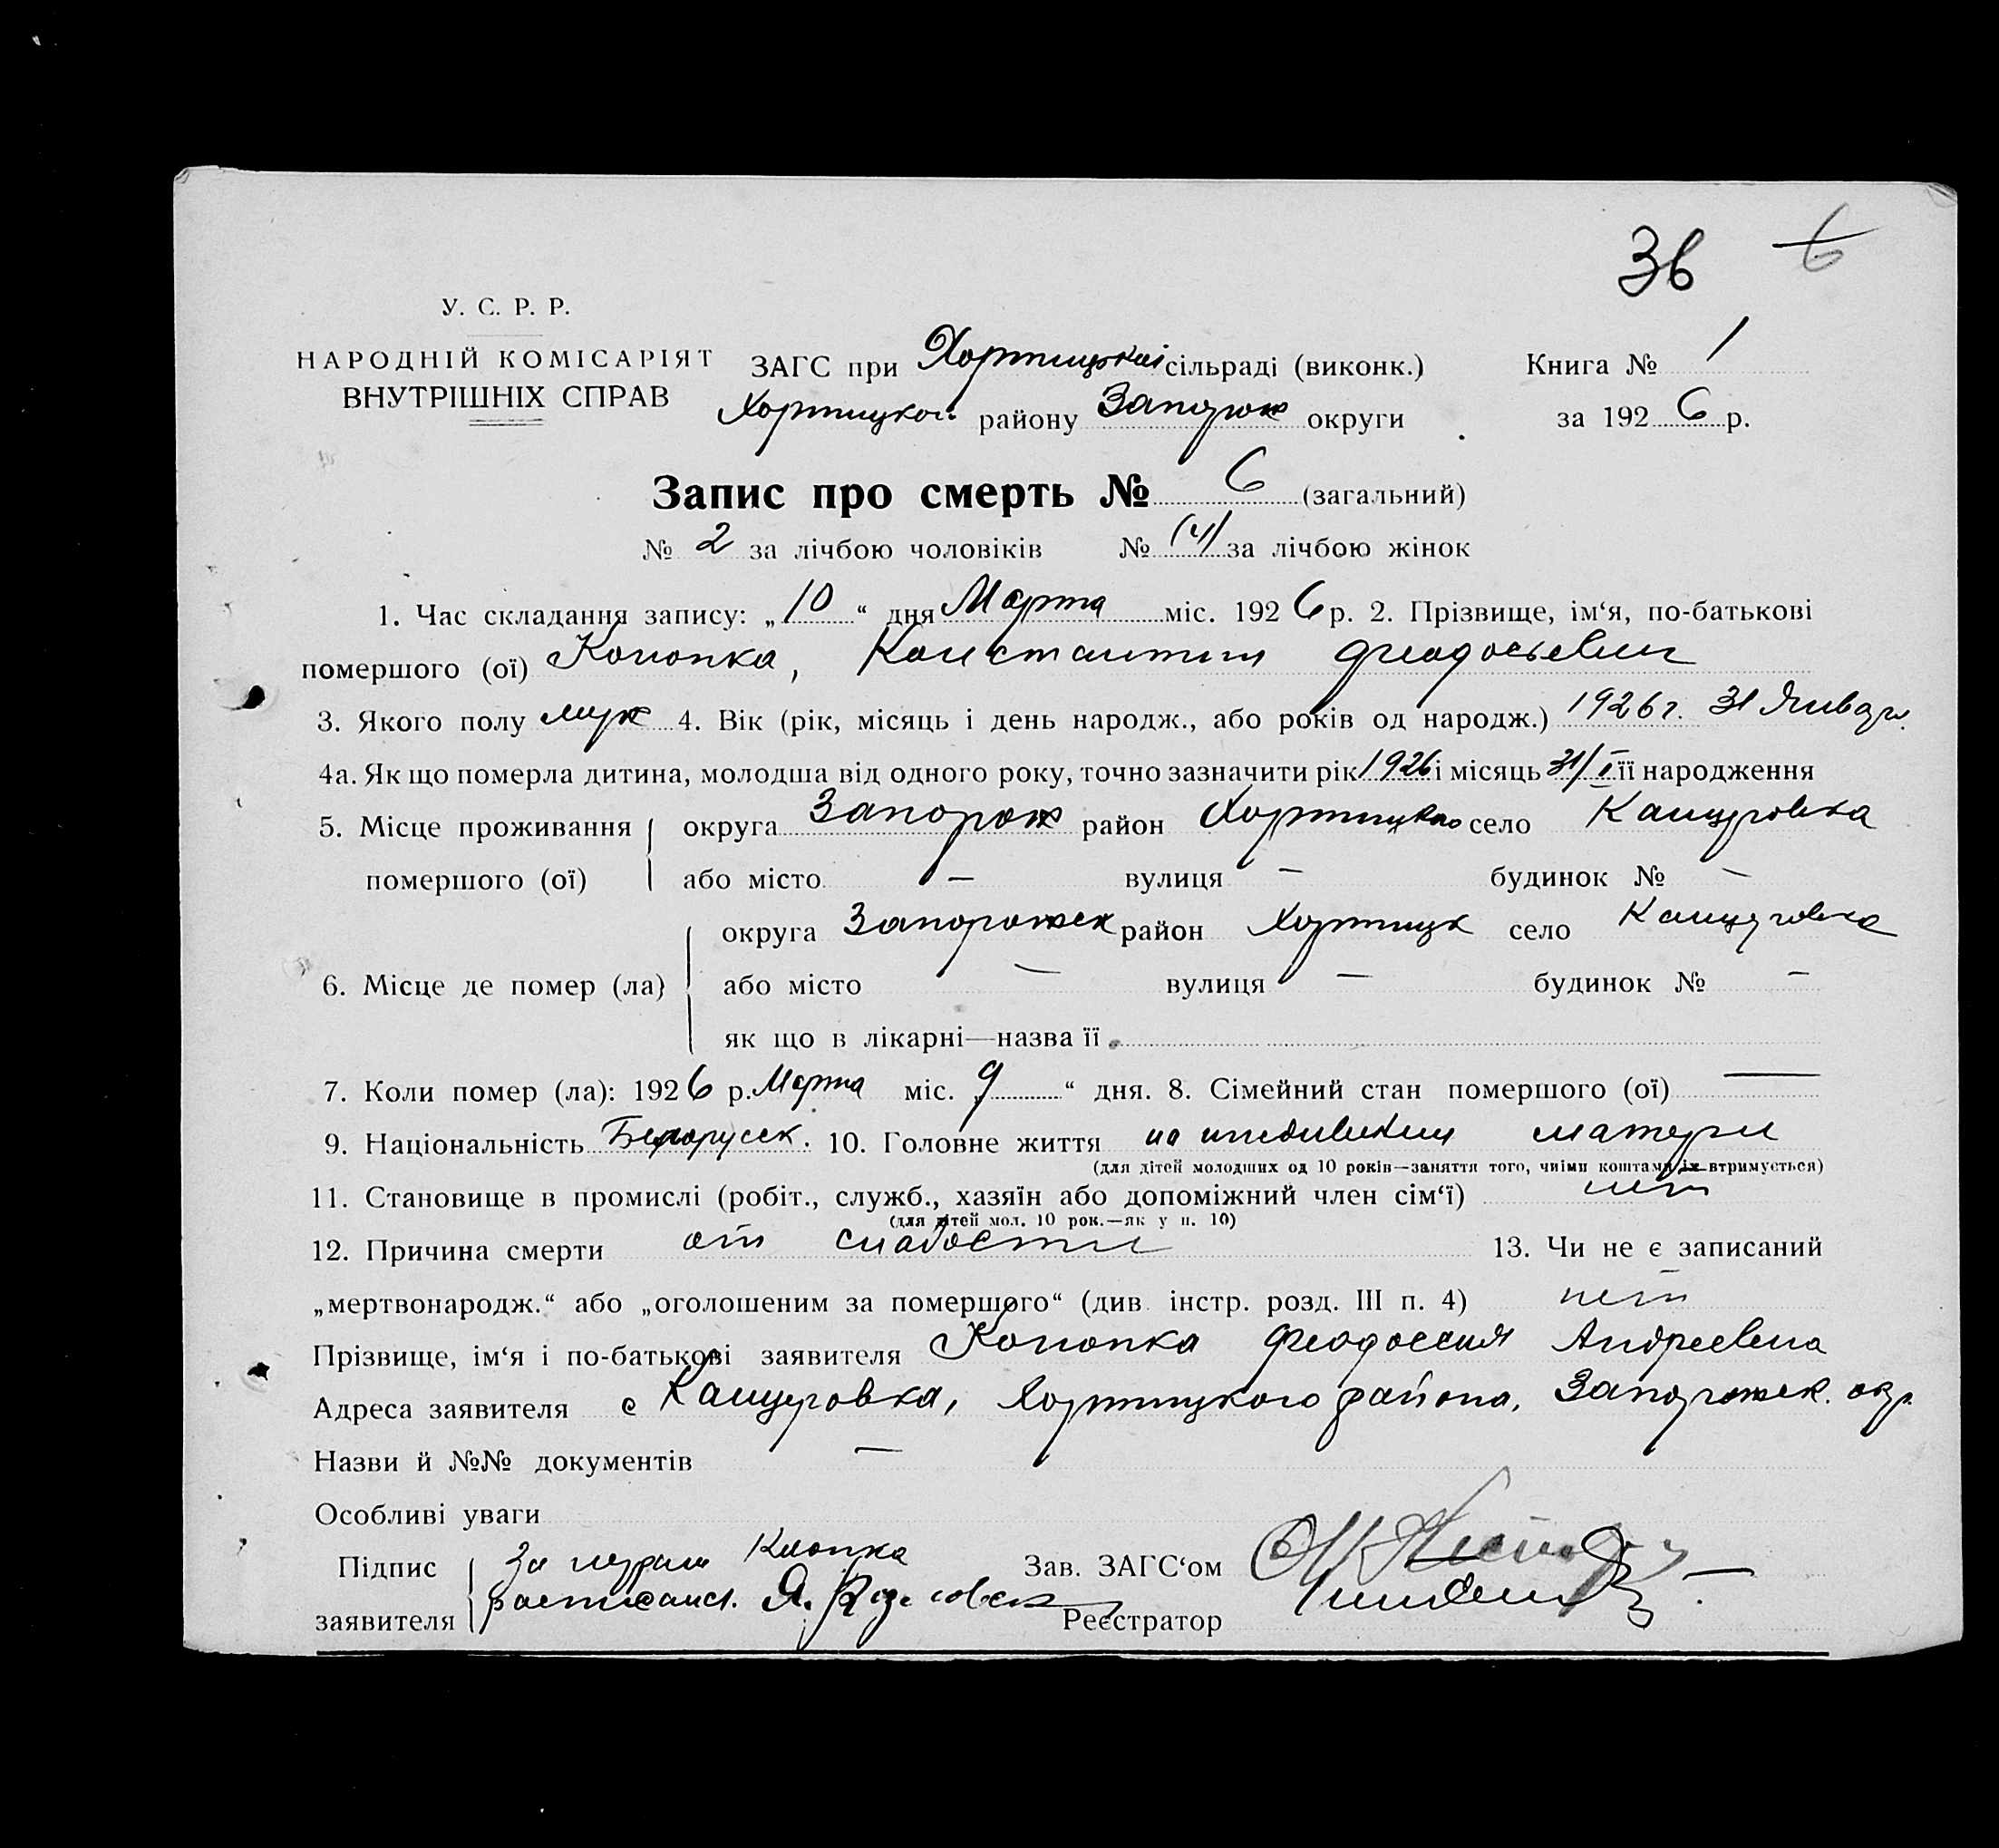 36 6
У. С. Р. Р.
НАРОДНІЙ КОМІСАРІЯТ
ВНУТРІШНІХ СПРАВ
ЗАГС при Хортицькій сільраді (виконк.) Книга № 1
Хортицкой району Запорож округи за 1926 р.
Запис про смерть № 6 (загальний)
№ 2 за лічбою чоловіків № (4) за лічбою жінок
1. Час складання запису: „10“ дня Марта міс. 1926 р. 2. Прізвище, ім‘я, по-батькові
помершого (ої) Конопка, Константин Феодосьевич
3. Якого полу муж 4. Вік (рік, місяць і день народж., або років од народж.) 1926 г. 31 Январ.
4а. Як що померла дитина, молодша від одного року, точно зазначити рік 1926 і місяць 31/I її народження
5. Місце проживання округа Запорож район Хортицкого село Канцеровка
помершого (ої) або місто — вулиця — будинок № —
округа Запорожск район Хортицк село Канцеровка
6. Місце де помер (ла) або місто — вулиця — будинок № —
як що в лікарні—назва її
7. Коли помер (ла): 1926 р. Марта міс. „9“ дня. 8. Сімейний стан помершого (ої) —
9. Національність Белорусск. 10. Головне життя на иждивении матери
(для дітей молодших од 10 років—заняття того, чиїми коштами їх втримується)
11. Становище в промислі (робіт., служб., хазяїн або допоміжний член сім‘ї) нет
(для дітей мол. 10 рок.—як у п. 10)
12. Причина смерти от слабости 13. Чи не є записаний
„мертвонародж.“ або „оголошеним за помершого“ (див. інстр. розд. III п. 4) нет
Прізвище, ім‘я і по-батькові заявителя Конопка Феодоссия Андреевна
Адреса заявителя с Канцеровка, Хортицкого района, Запорожск. окр.
Назви й №№ документів —
Особливі уваги
Підпис За неграм Конопка Зав. ЗАГС‘ом
заявителя расписался. Я. Реєстратор